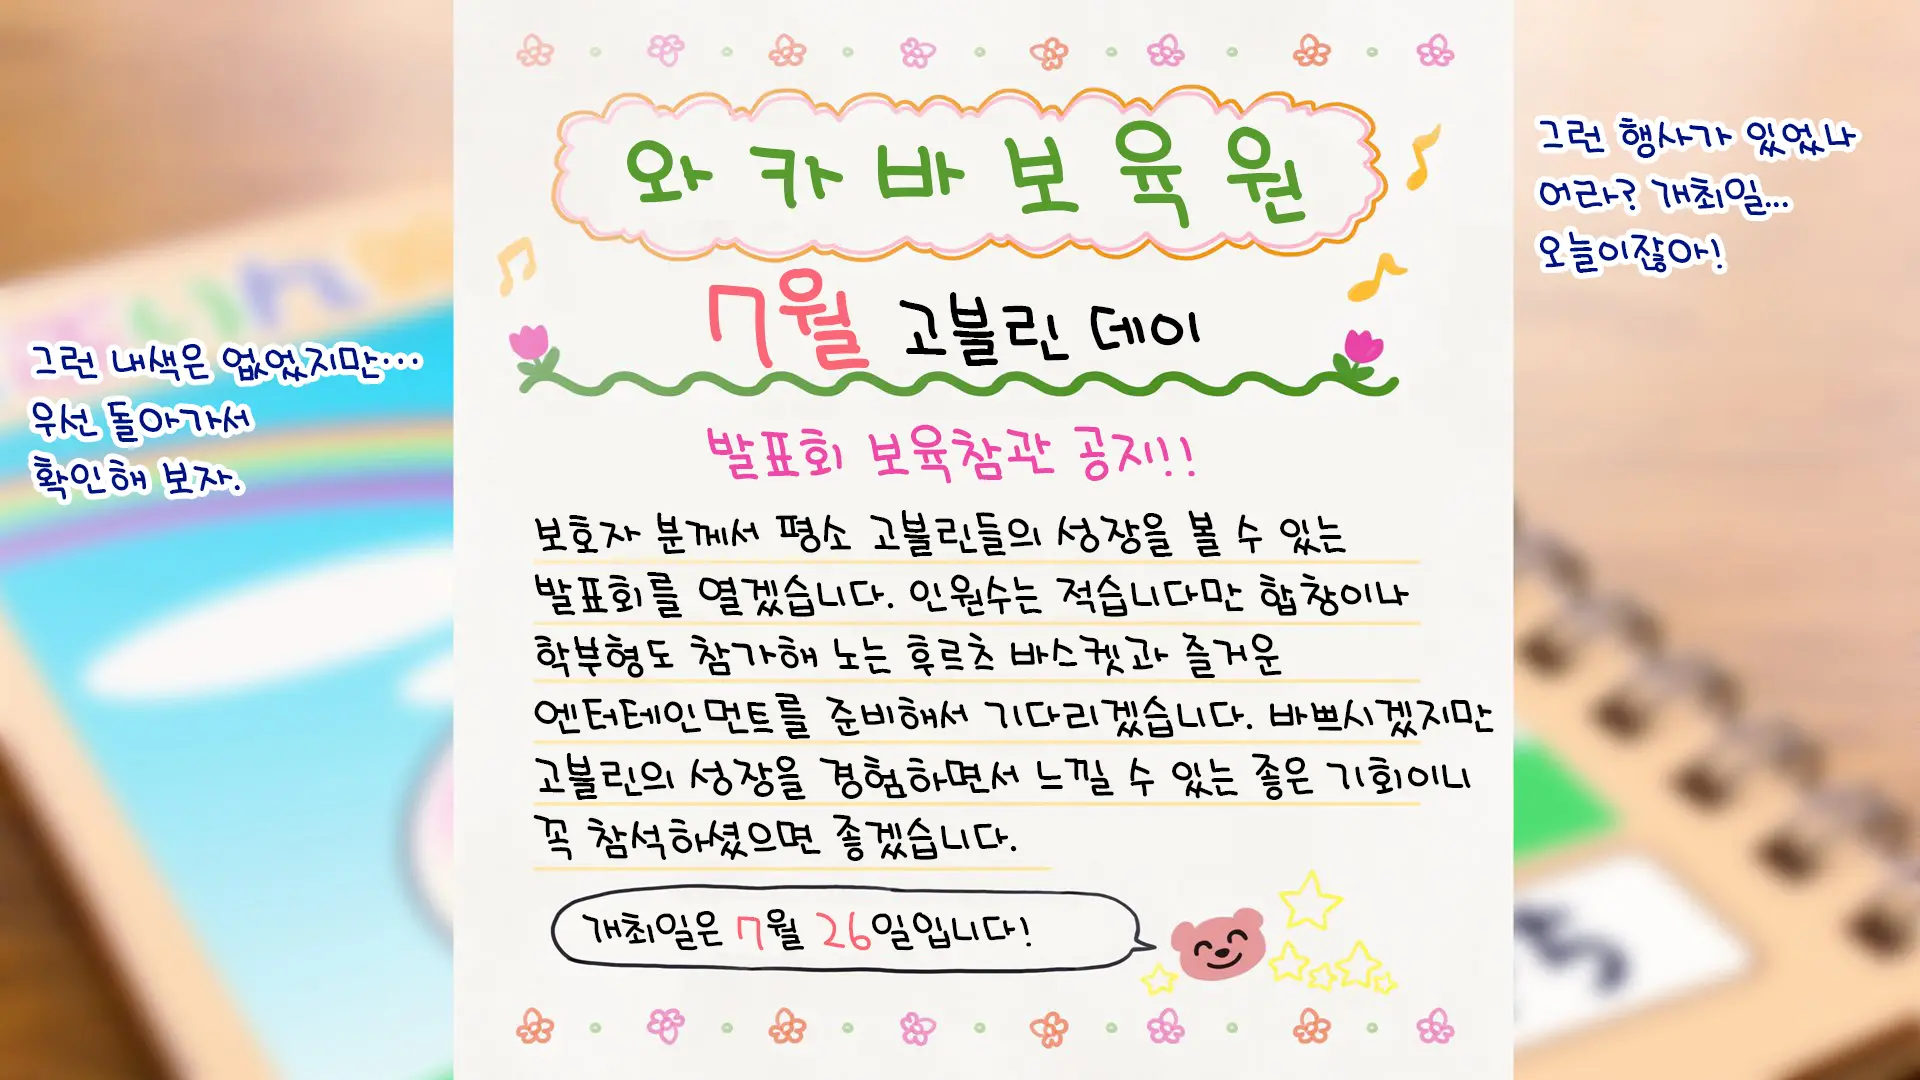 와카바보육원
7월 고블린 데이
발표회 보육참관 공지!!
보호자 분께서 평소 고블린들의 성장을 볼 수 있는
발표회를 열겠습니다. 인원수는 적습니다만 합창이나
학부형도 참가해 노는 후르츠 바스켓과 즐거운
엔터테인먼트를 준비해서 기다리겠습니다. 바쁘시겠지만
고블린의 성장을 경험하면서 느낄 수 있는 좋은 기회이니
꼭 참석하셨으면 좋겠습니다.
개최일은 7월 26일입니다!
그런 행사가 있었나
어라? 개최일...
오늘이잖아!
그런 내색은 없었지만...
우선 돌아가서
확인해 보자.